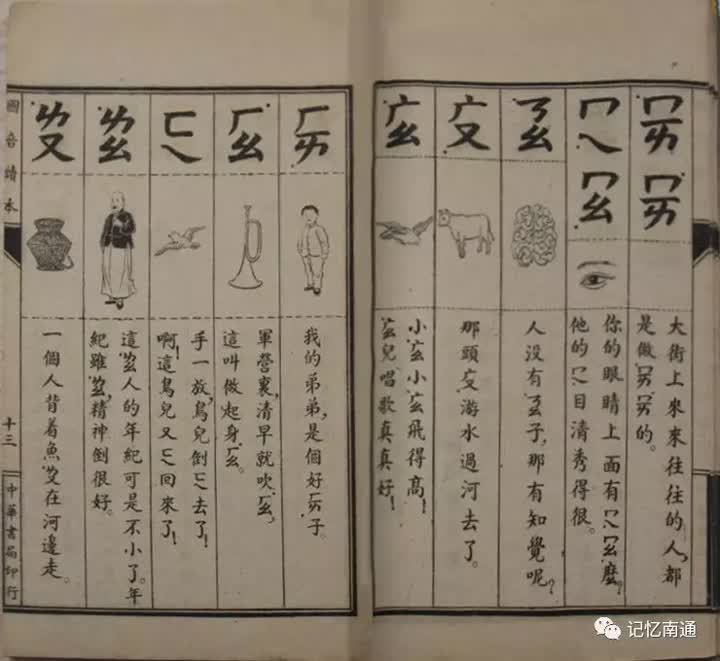 ㄇㄞ
ㄇㄞ
大街上來來往往的人,都
是做ㄇㄞㄇㄞ的。
ㄇㄟ
ㄇㄠ
你的眼睛上面有ㄇㄟㄇㄠ麼?
他的ㄇㄟ目清秀得很。
ㄋㄠ
人沒有ㄋㄠ子,那有知覺呢?
ㄬㄡ
那頭ㄬㄡ游水過河去了。
ㄬㄠ
小ㄬㄠ小ㄬㄠ飛得高!
ㄬㄠ兒唱歌真真好!
ㄏㄞ
我的弟弟,是個好ㄏㄞ子。
ㄏㄠ
軍營裏,清早就吹ㄏㄠ,
這叫做起身ㄏㄠ。
ㄈㄟ
手一放,鳥兒倒ㄈㄟ去了!
啊!這鳥兒又ㄈㄟ回來了!
ㄌㄠ
這ㄌㄠ人的年紀可是不小了。年
紀雖ㄌㄠ,精神倒很好。
ㄌㄡ
一個人背着魚ㄌㄡ在河邊走。
國音讀本
十三
中華書局印行
记忆南通